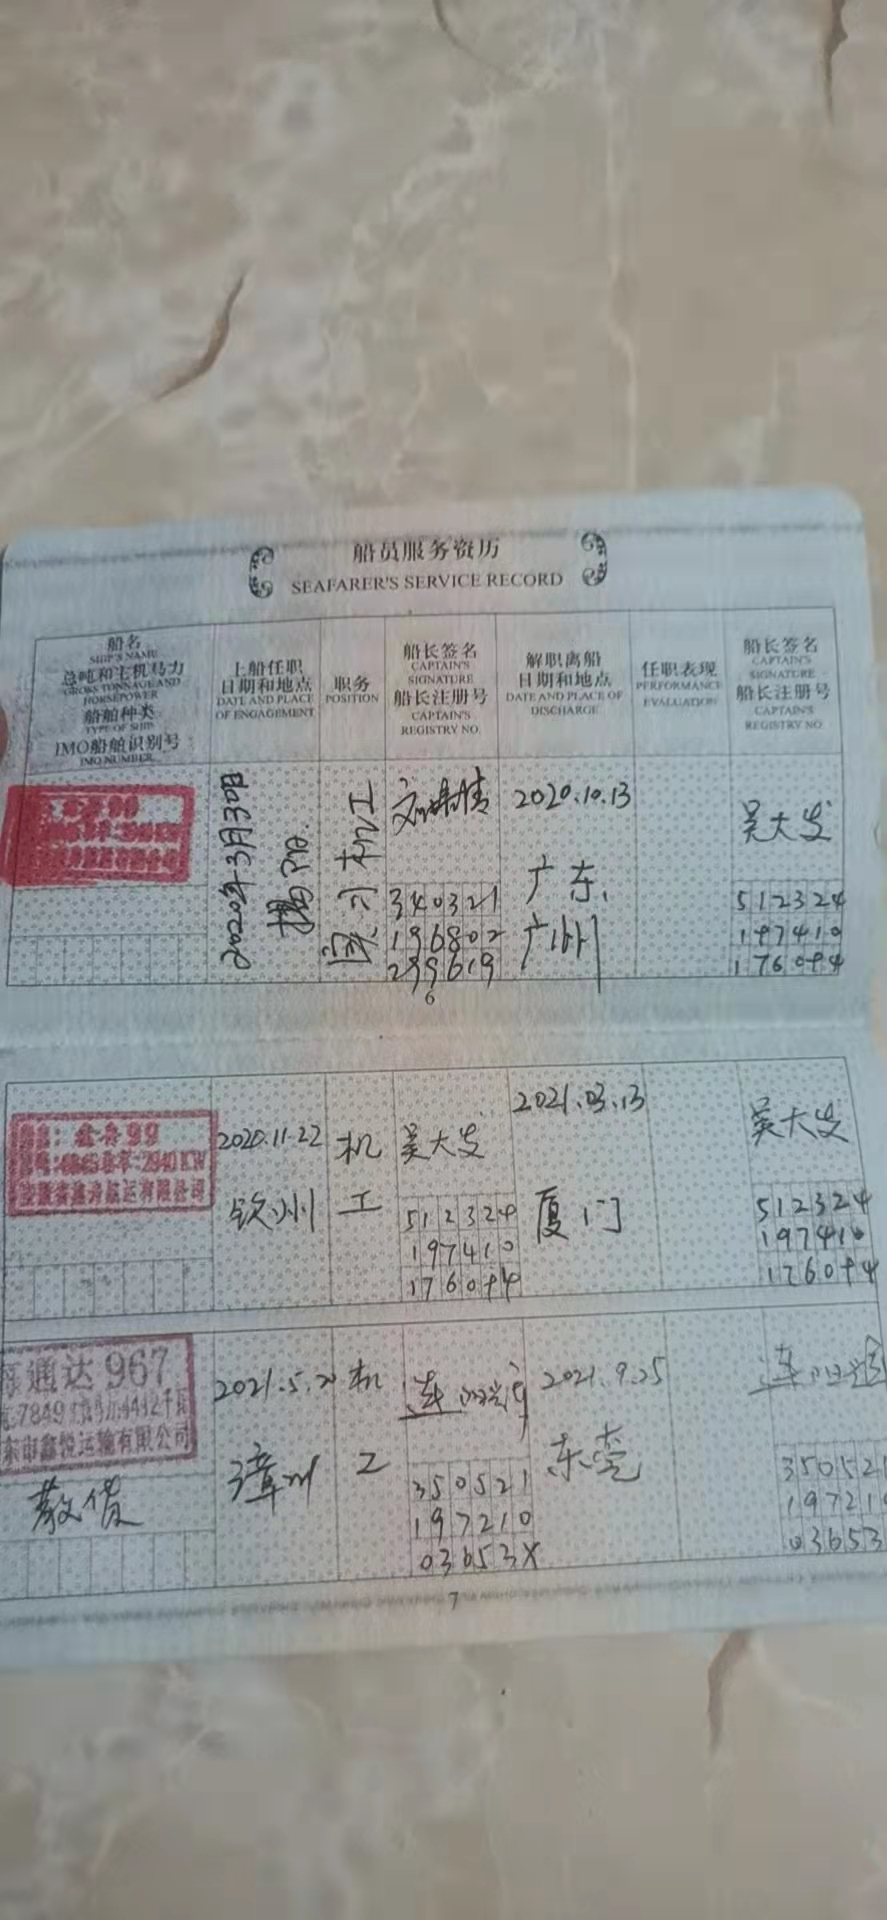 船员服务资历
SEAFARER'S SERVICE RECORD
船名
SHIP'S NAME
总吨和主机马力
GROSS TONNAGE AND
HORSEPOWER
船舶种类
TYPE OF SHIP
IMO船舶识别号
IMO NUMBER
上船任职
日期和地点
DATE AND PLACE
OF ENGAGEMENT
职务
POSITION
船长签名
CAPTAIN'S
SIGNATURE
船长注册号
CAPTAIN'S
REGISTRY NO.
解职离船
日期和地点
DATE AND PLACE OF
DISCHARGE
任职表现
PERFORMANCE
EVALUATION
船长签名
CAPTAIN'S
SIGNATURE
船长注册号
CAPTAIN'S
REGISTRY NO
2020年3月30日
实习机工
340321
196802
2020.10.13
广东
广州
吴大发
512324
197410
6
99
2020.11.22
钦州
机
工
吴大发
512324
197410
2021.03.13
厦门
吴大发
512324
197410
通达967
运输有限公司
散货
漳州
机
工
350521
197210
03653X
2021.9.25
东莞
35052
19721
03653
7